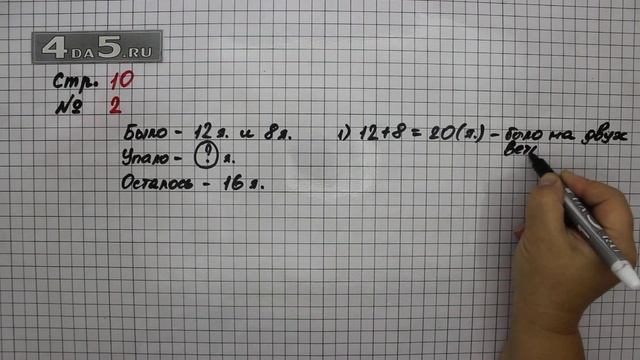 4DA5.RU
Стр. 10
№ 2
Было - 12 я. и 8 я.
Упало - ? я.
Осталось - 16 я.
1) 12+8=20 (я.) - было на двух
вет